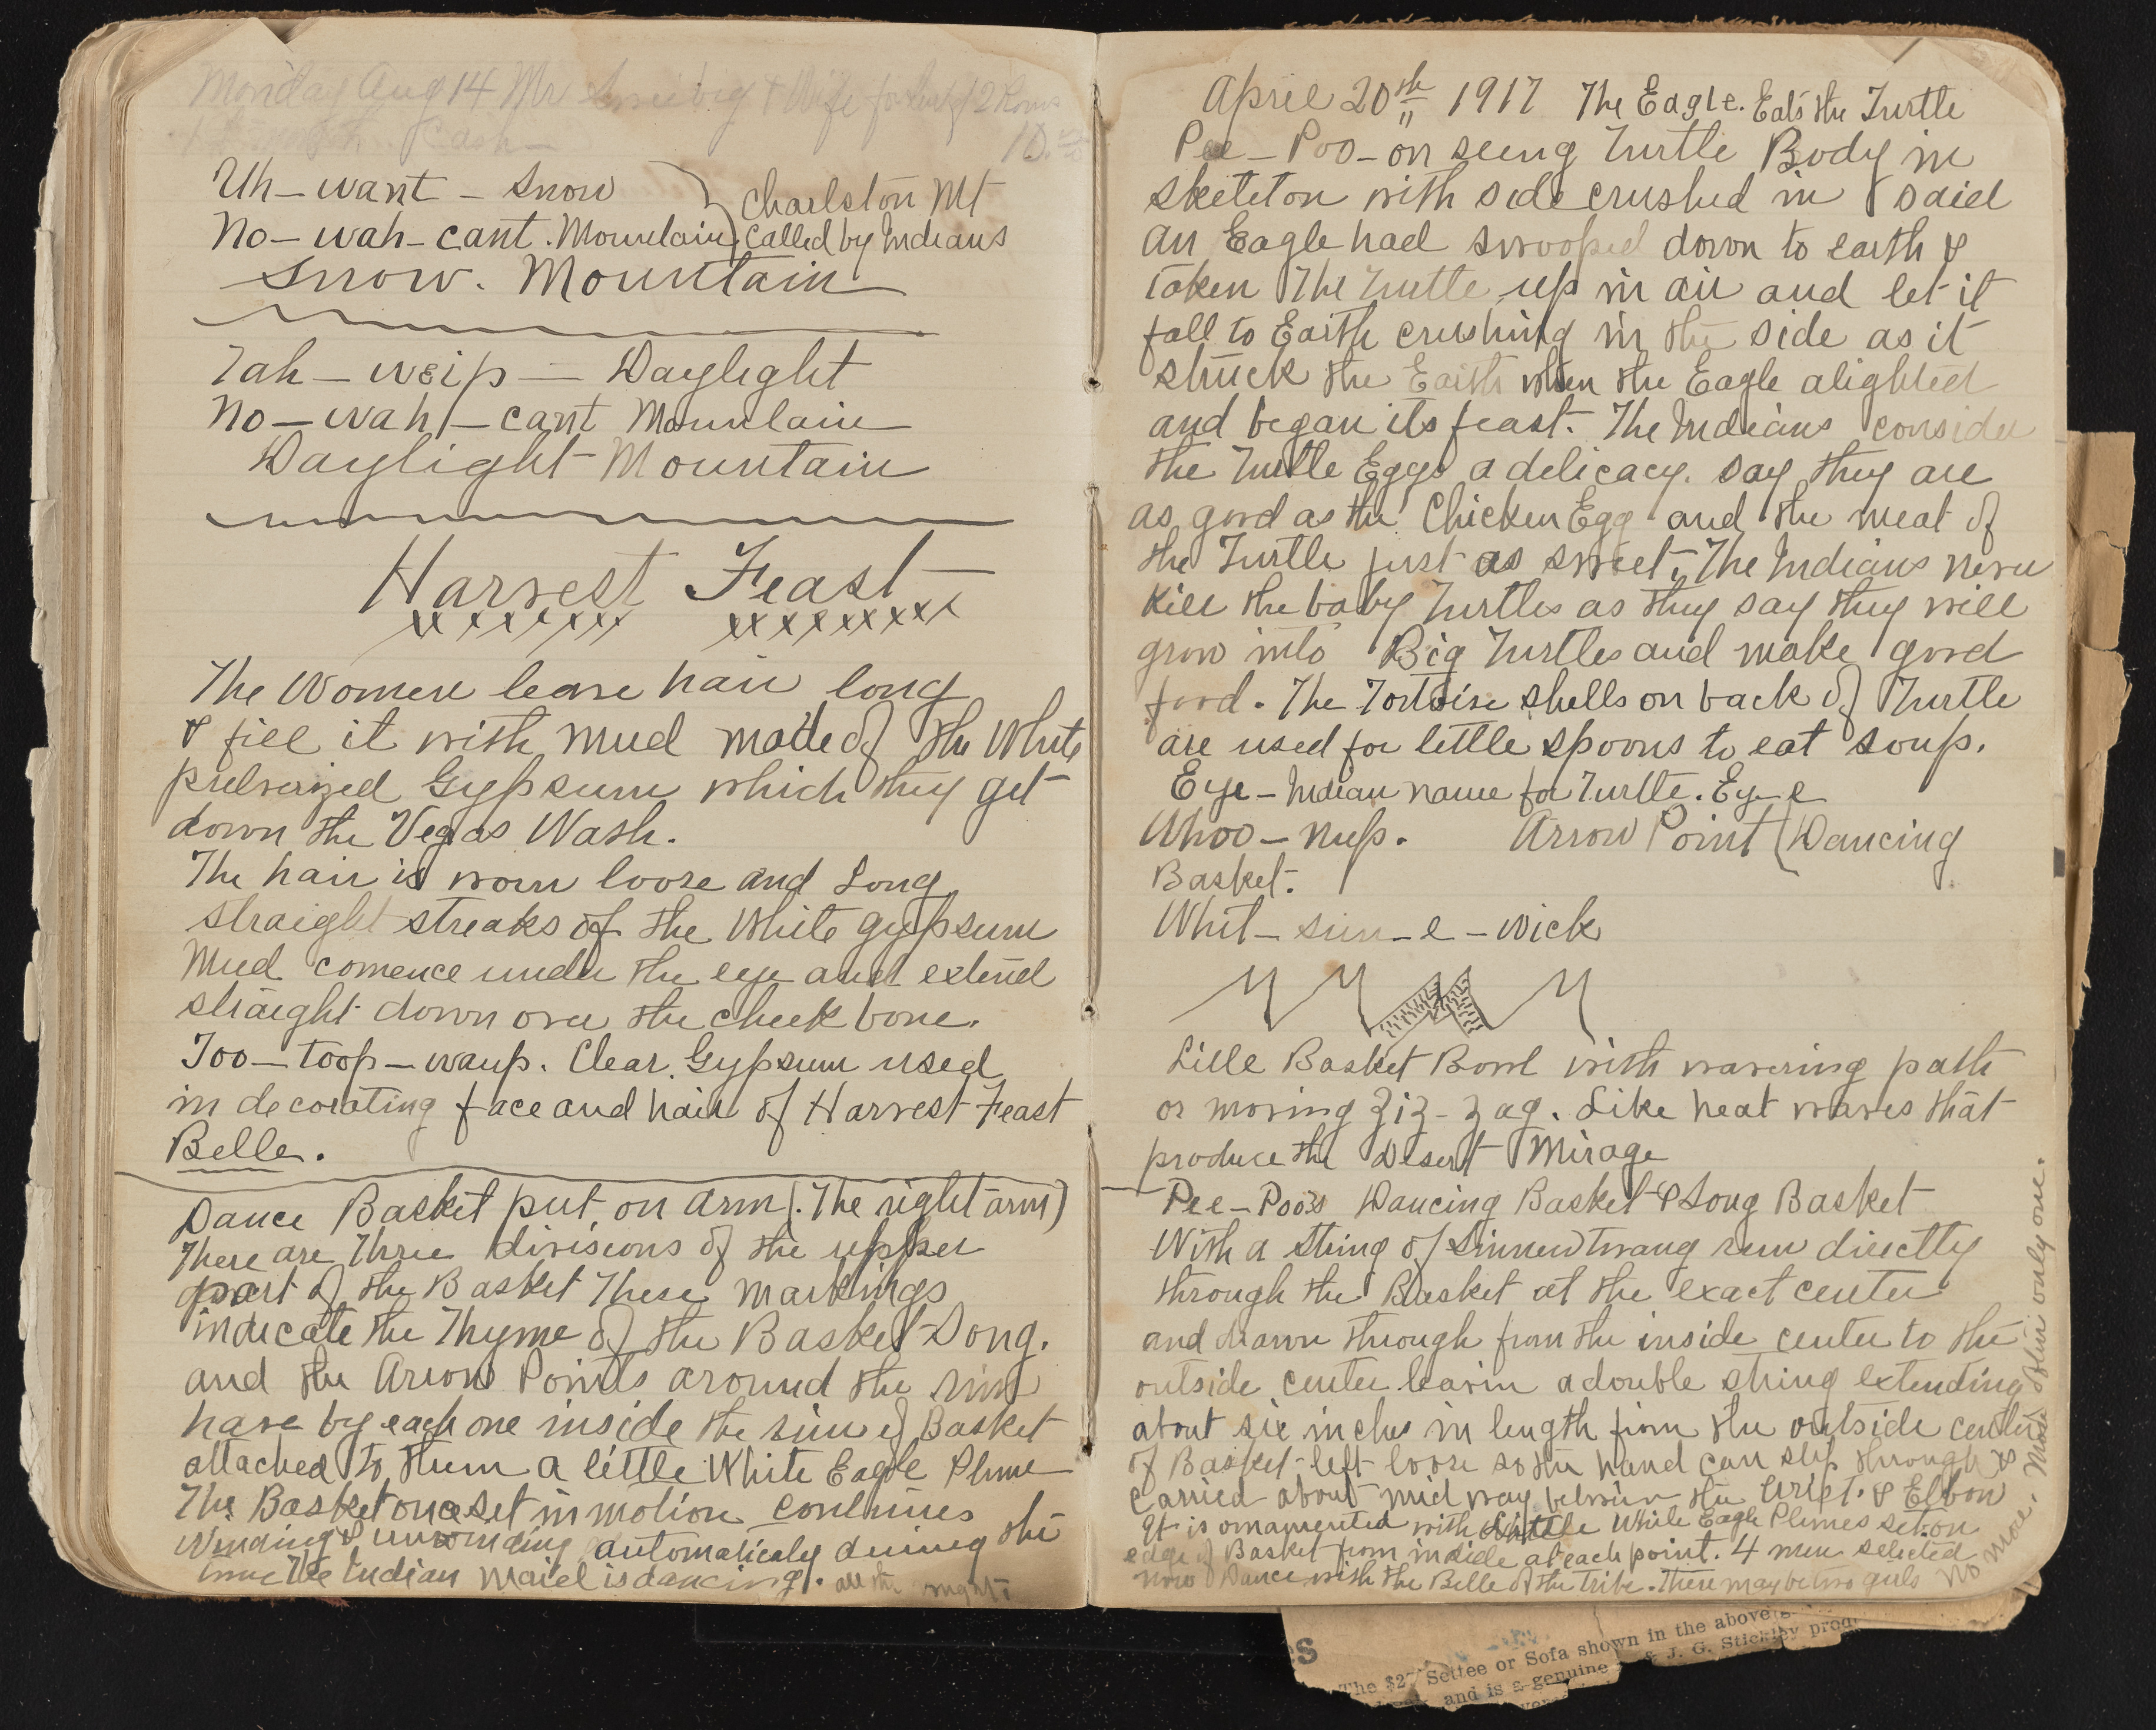 Monday Aug 14 Mr & Wife for 2 Rooms
Cash 10.00
Uh-want - Snow
No-wah-cant. Mountain
Charlston Mt
called by Indians
Snow. Mountain
Tah-weip - Daylight
No-wah-cant Mountain
Daylight Mountain
Harvest Feast
xxxxxxx xxxxxxxx
The Women leave hair long
& fill it with mud made of the White
pulverized Gypsum which they get
down the Vegas Wash.
The hair is worn loose and Long
straight streaks of the White gypsum
Mud comence under the eye and extend
straight down over the cheek bone.
Too-toop-waup. Clear Gypsum used
in decorating face and hair of Harvest Feast
Belle.
Dance Basket put on arm (. The right arm)
There are three divisions of the upper
part of the Basket These markings
indicate the Thyme of the Basket Song.
and the Arrow Points around the rim
have by each one inside the rim of Basket
attached to them a little White Eagle Plume
The Basket once set in motion continues
Winding & unwinding automaticaly during the
time the Indian Maid is dancing. all the night.
April 20th 1917 The Eagle. Eats the Turtle
Pee-Poo-on seeing Turtle Body in
skeleton with side crushed in said
an Eagle had swooped down to earth &
Taken The Turtle up in air and let it
fall to Earth crushing in the side as it
struck the Earth when the Eagle alighted
and began its feast. The Indians consider
the Turtle Eggs a delicacy. say they are
as good as the Chicken Egg and the meat of
the Turtle just as sweet. The Indians never
kill the baby Turtles as they say they will
grow into Big Turtles and make good
food. The Tortoise shells on back of Turtle
are used for little spoons to eat soup.
Eye-Indian name for Turtle. Ey-e
Whoo-nup. Arrow Point (Dancing
Basket.
Whit-sun-e-wick
Lille Basket Bowl with wavering path
or moving Ziz-zag. Like heat waves that
produce the Desert Mirage
Pee-Poo's Dancing Basket & Song Basket
With a string of Sinnew twang run directly
through the Basket at the exact center
and drawn through from the inside center to the
outside center leavin a double string extending
about six inches in length from the outside center
of Basket-left loose so the hand can slip through is
carried about mid way between the Wrist & Elbow
It is ornamented with little White Eagle Plumes set on
edge of Basket from inside at each point. 4 men selected
now Dance with the Belle of the Tribe. There may be two girls
No more. Most often only one.
ES
The $27 Settee or Sofa shown in the above
& J. G. Stickley
and is a genuine